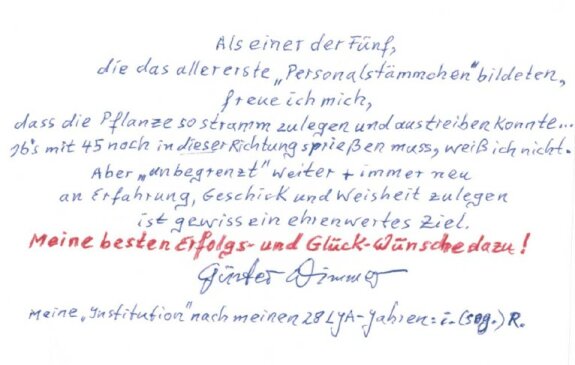 Als einer der Fünf,
die das allererste „Personalstämmchen" bildeten,
freue ich mich,
dass die Pflanze so stramm zulegen und austreiben konnte...
Ob's mit 45 noch in dieser Richtung sprießen muss, weiß ich nicht.
Aber „unbegrenzt" weiter + immer neu
an Erfahrung, Geschick und Weisheit zulegen
ist gewiss ein ehrenwertes Ziel.
Meine besten Erfolgs- und Glück-Wünsche dazu!
Günter Wimmer
Meine „Institution" nach meinen 28 LJA-Jahren: i. (sog.) R.